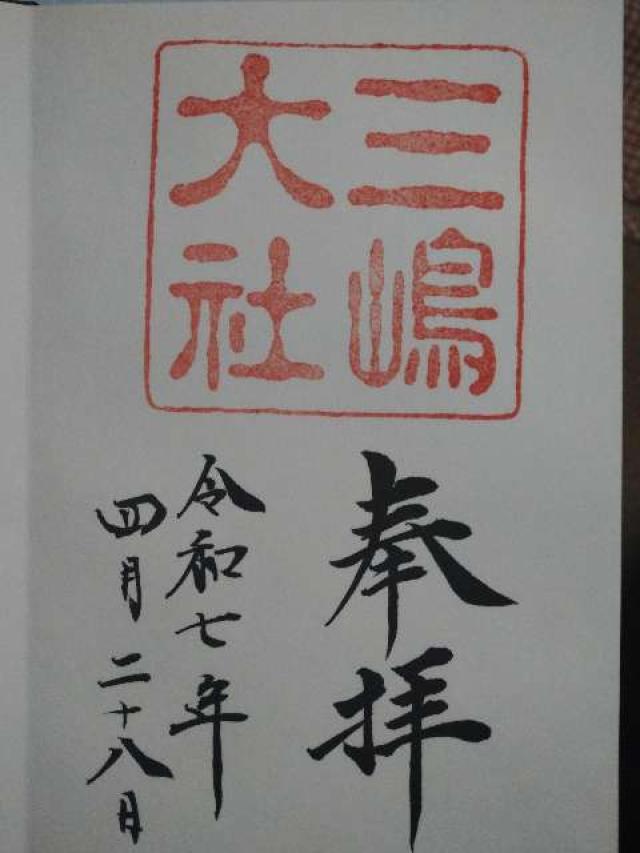 三嶋
大社
奉拝
令和七年
四月二十八日